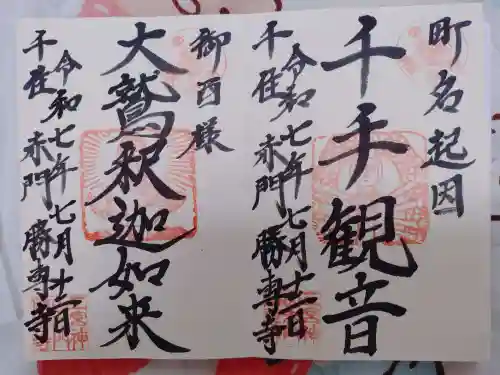 町名起因
千手観音
令和七年七月十二日
千住 赤門 勝専寺
御酉様
大鷲釈迦如来
令和七年七月十二日
千住 赤門 勝専寺